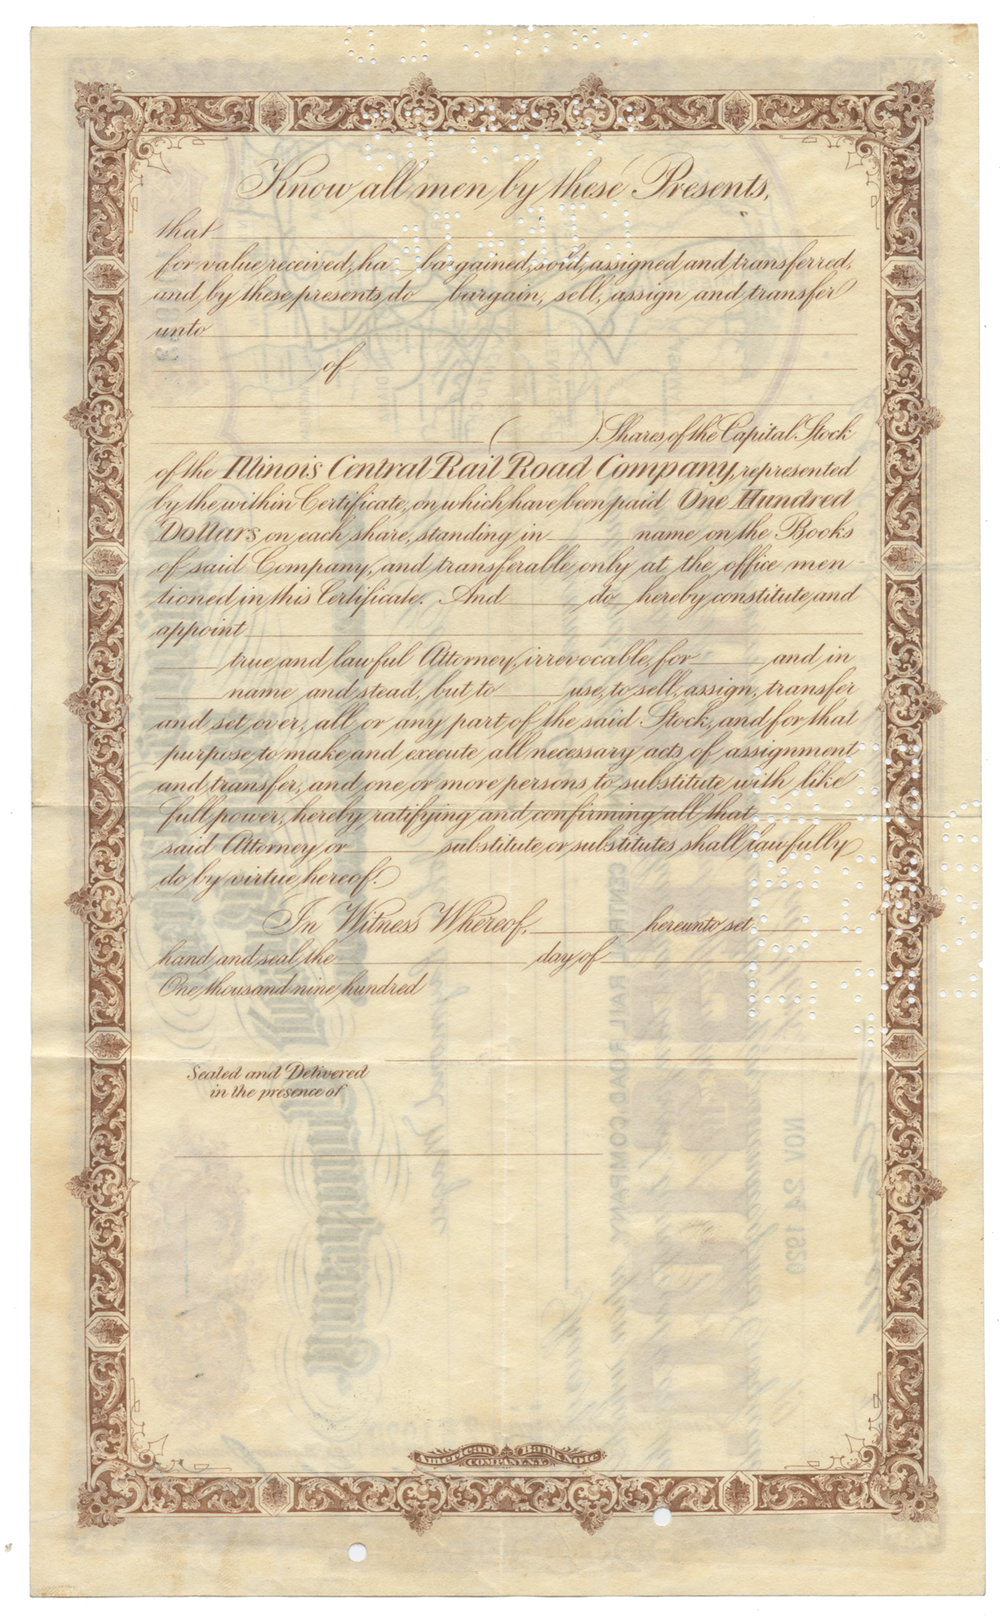 Know all men by these Presents,
that
for value received, ha bargained, sold, assigned and transferred,
and by these presents do bargain, sell, assign and transfer
unto
of
( ) Shares of the Capital Stock
of the Illinois Central Rail Road Company, represented
by the within Certificate, on which have been paid One Hundred
Dollars on each share, standing in name on the Books
of said Company, and transferable only at the office men-
tioned in this Certificate. And do hereby constitute and
appoint
true and lawful Attorney, irrevocable, for and in
name and stead, but to use, to sell, assign, transfer
and set over, all or any part of the said Stock, and for that
purpose to make and execute all necessary acts of assignment
and transfer, and one or more persons to substitute with like
full power, hereby ratifying and confirming all that
said Attorney or substitute or substitutes shall lawfully
do by virtue hereof.
In Witness Whereof, hereunto set
hand and seal the day of
One thousand nine hundred
Sealed and Delivered
in the presence of
NOV 24 1920
American Bank Note
COMPANY, N.Y.